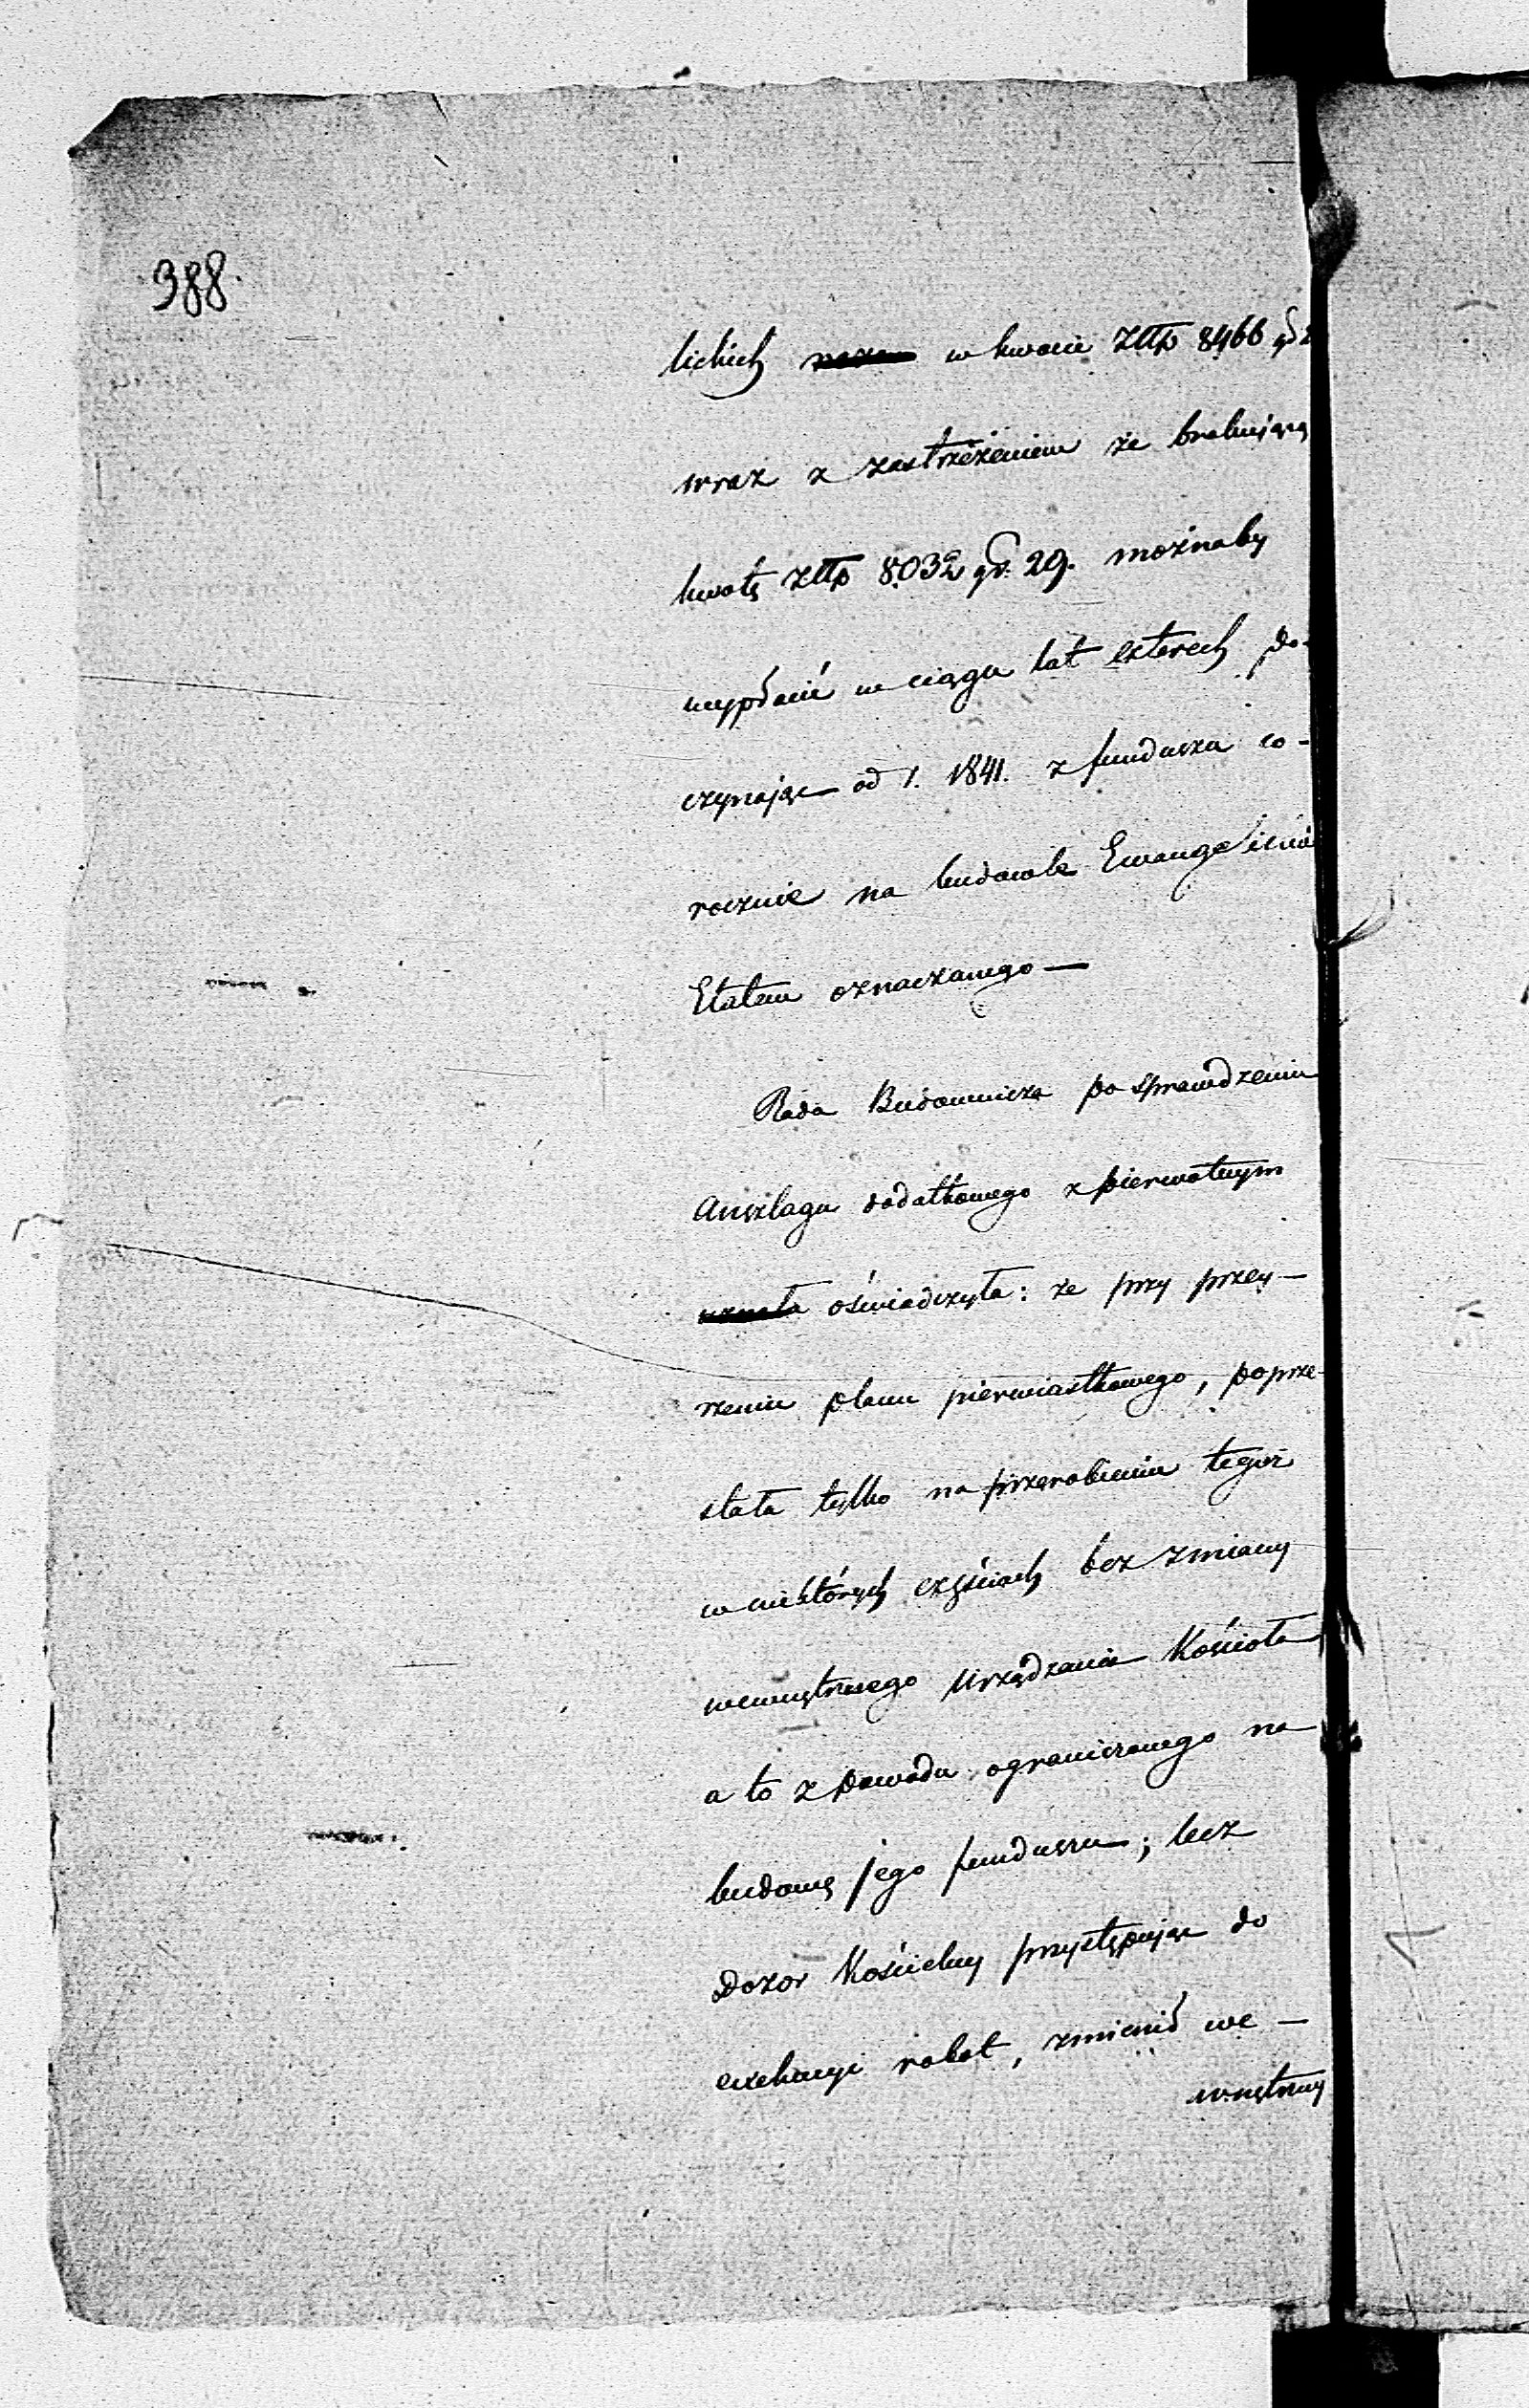 388.
lickich w kwocie Złtp 8466 gr 2
wraz z zastrzeżeniem że brakującą
kwotę Złtp 8032 gr. 29. możnaby
wypłacić w ciągu lat czterech po-
czynając od r. 1841. z funduszu co-
rocznie na budowle Ewangelickie
Etatem oznaczanego —
Rada Budownicza po sprawdzeniu
Anszlagu dodatkowego z pierwotnym
uznała oświadczyła: że przy przey-
rzeniu planu pierwiastkowego, poprze-
stała tylko na przerobieniu tegoż
w niektórych częściach bez zmiany
wewnętrznego Urządzenia Kościoła
a to z powodu ograniczonego na
budowę jego funduszu; lecz
Dozor Kościelny przystępując do
exekucyi robot, zmienił we-
wnętrzny